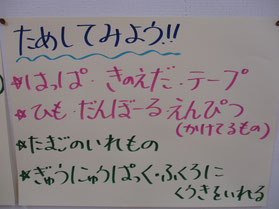 ためしてみよう!!
☆はっぱ・きのえだ・テープ
☆ひも・だんぼーる・えんぴつ
(かけてるもの)
☆たまごのいれもの
☆ぎゅうにゅうぱっく・ふくろに
くうきをいれる